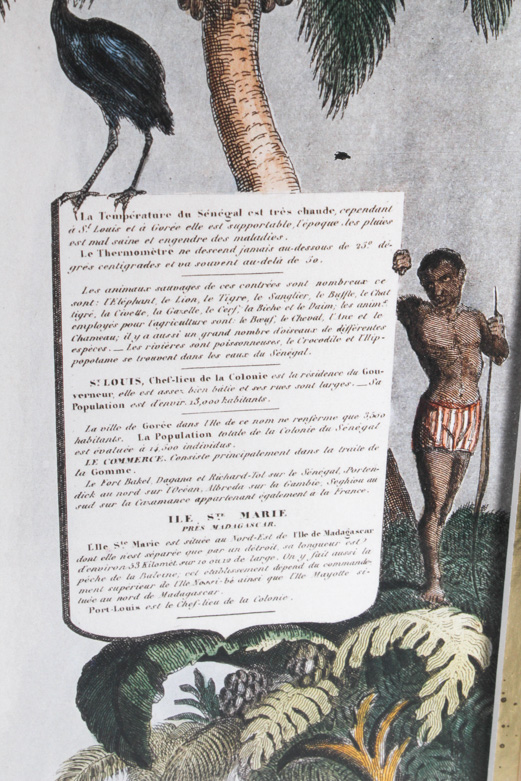 La Température du Sénégal est très chaude, cependant
à St. Louis et à Gorée elle est supportable, l'époque des pluies
est mal saine et engendre des maladies.
Le Thermomètre ne descend jamais au-dessous de 25° de-
grés centigrades et va souvent au-delà de 50.
Les animaux sauvages de ces contrées sont nombreux ce
sont: l'Eléphant, le Lion, le Tigre, le Sanglier, le Buffle, le Chat
tigré, la Civette, la Gazelle, le Cerf, la Biche et le Daim; les anim.x
employés pour l'agriculture sont: le Bœuf, le Cheval, l'Ane et le
Chameau; il y a aussi un grand nombre d'oiseaux de différentes
espèces. — Les rivières sont poissonneuses, le Crocodile et l'Hip-
popotame se trouvent dans les eaux du Sénégal.
St. LOUIS, Chef-lieu de la Colonie est la résidence du Gou-
verneur, elle est assez bien bâtie et ses rues sont larges. — Sa
Population est d'envir. 15,000 habitants.
La ville de Gorée dans l'Ile de ce nom ne renferme que 3500
habitants. La Population totale de la Colonie du Sénégal
est évaluée à individus.
LE COMMERCE. Consiste principalement dans la traite de
la Gomme.
Le Fort Bakel, Dagana et Richard-Tol sur le Sénégal, Porten-
dick au nord sur l'Océan, Albreda sur la Gambie, Seghiou au
sud sur la Casamance appartenant également à la France.
ILE Ste. MARIE
PRÈS MADAGASCAR.
L'Ile Ste. Marie est située au Nord-Est de l'Ile de Madagascar
dont elle n'est séparée que par un détroit, sa longueur est
d'environ 53 Kilomèt. sur 10 ou 12 de large. On y fait aussi la
pêche de la Baleine, cet établissement dépend du commande-
ment supérieur de l'Ile Nossi-bé ainsi que l'Ile Mayotte si-
tuée au nord de Madagascar.
Port-Louis est le Chef-lieu de la Colonie.